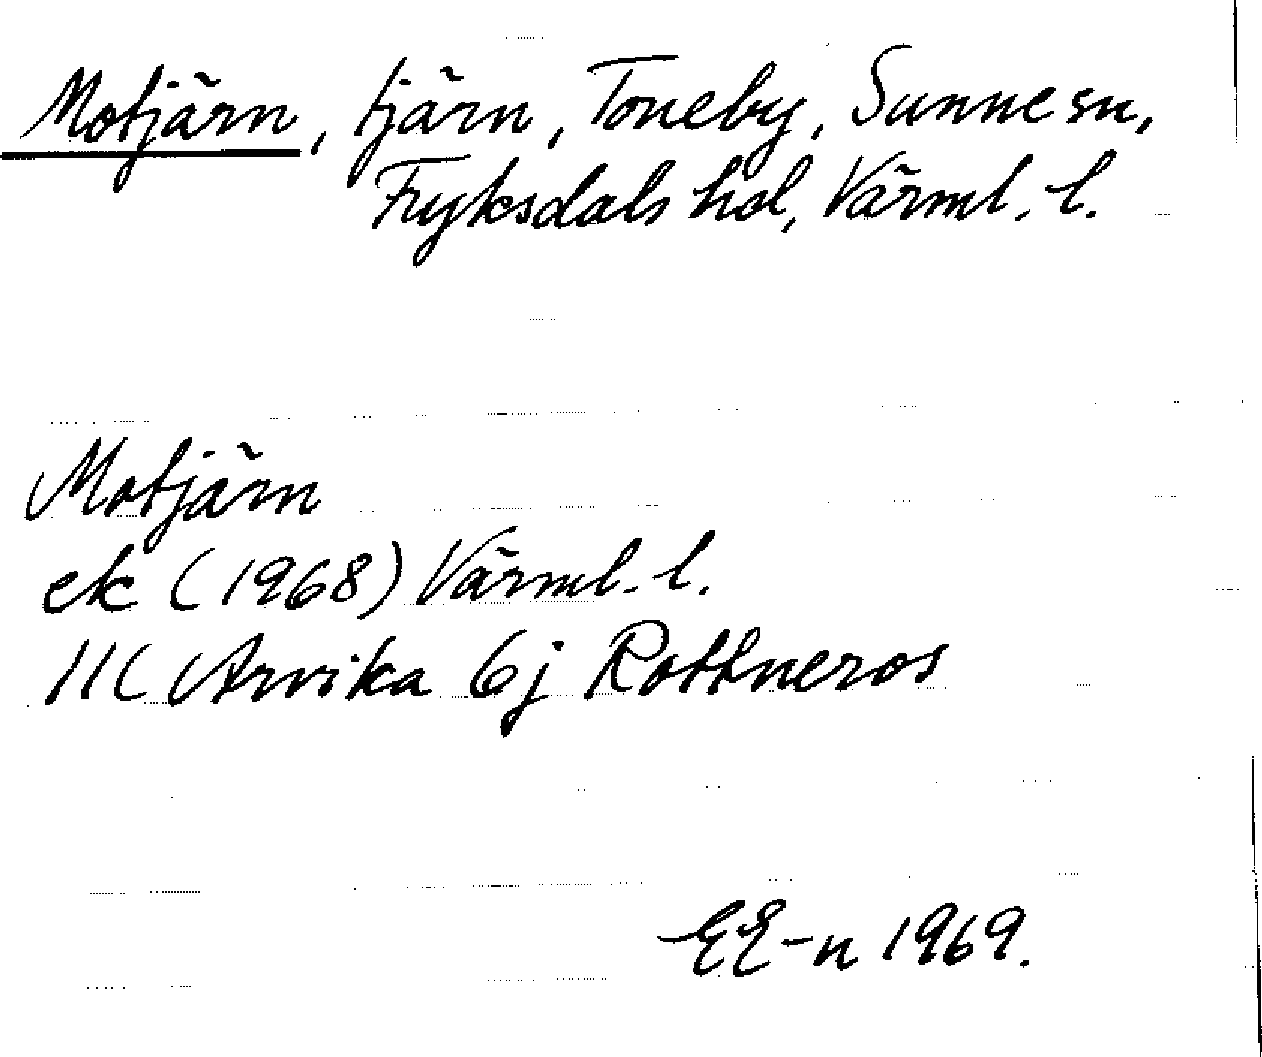 Motjärn, tjärn, Toneby, Sunne sn,
Fryksdals hd, Värml. l.
Motjärn
ek (1968) Värml. l.
11C Arvika 6j Rottneros
EE-n 1969.